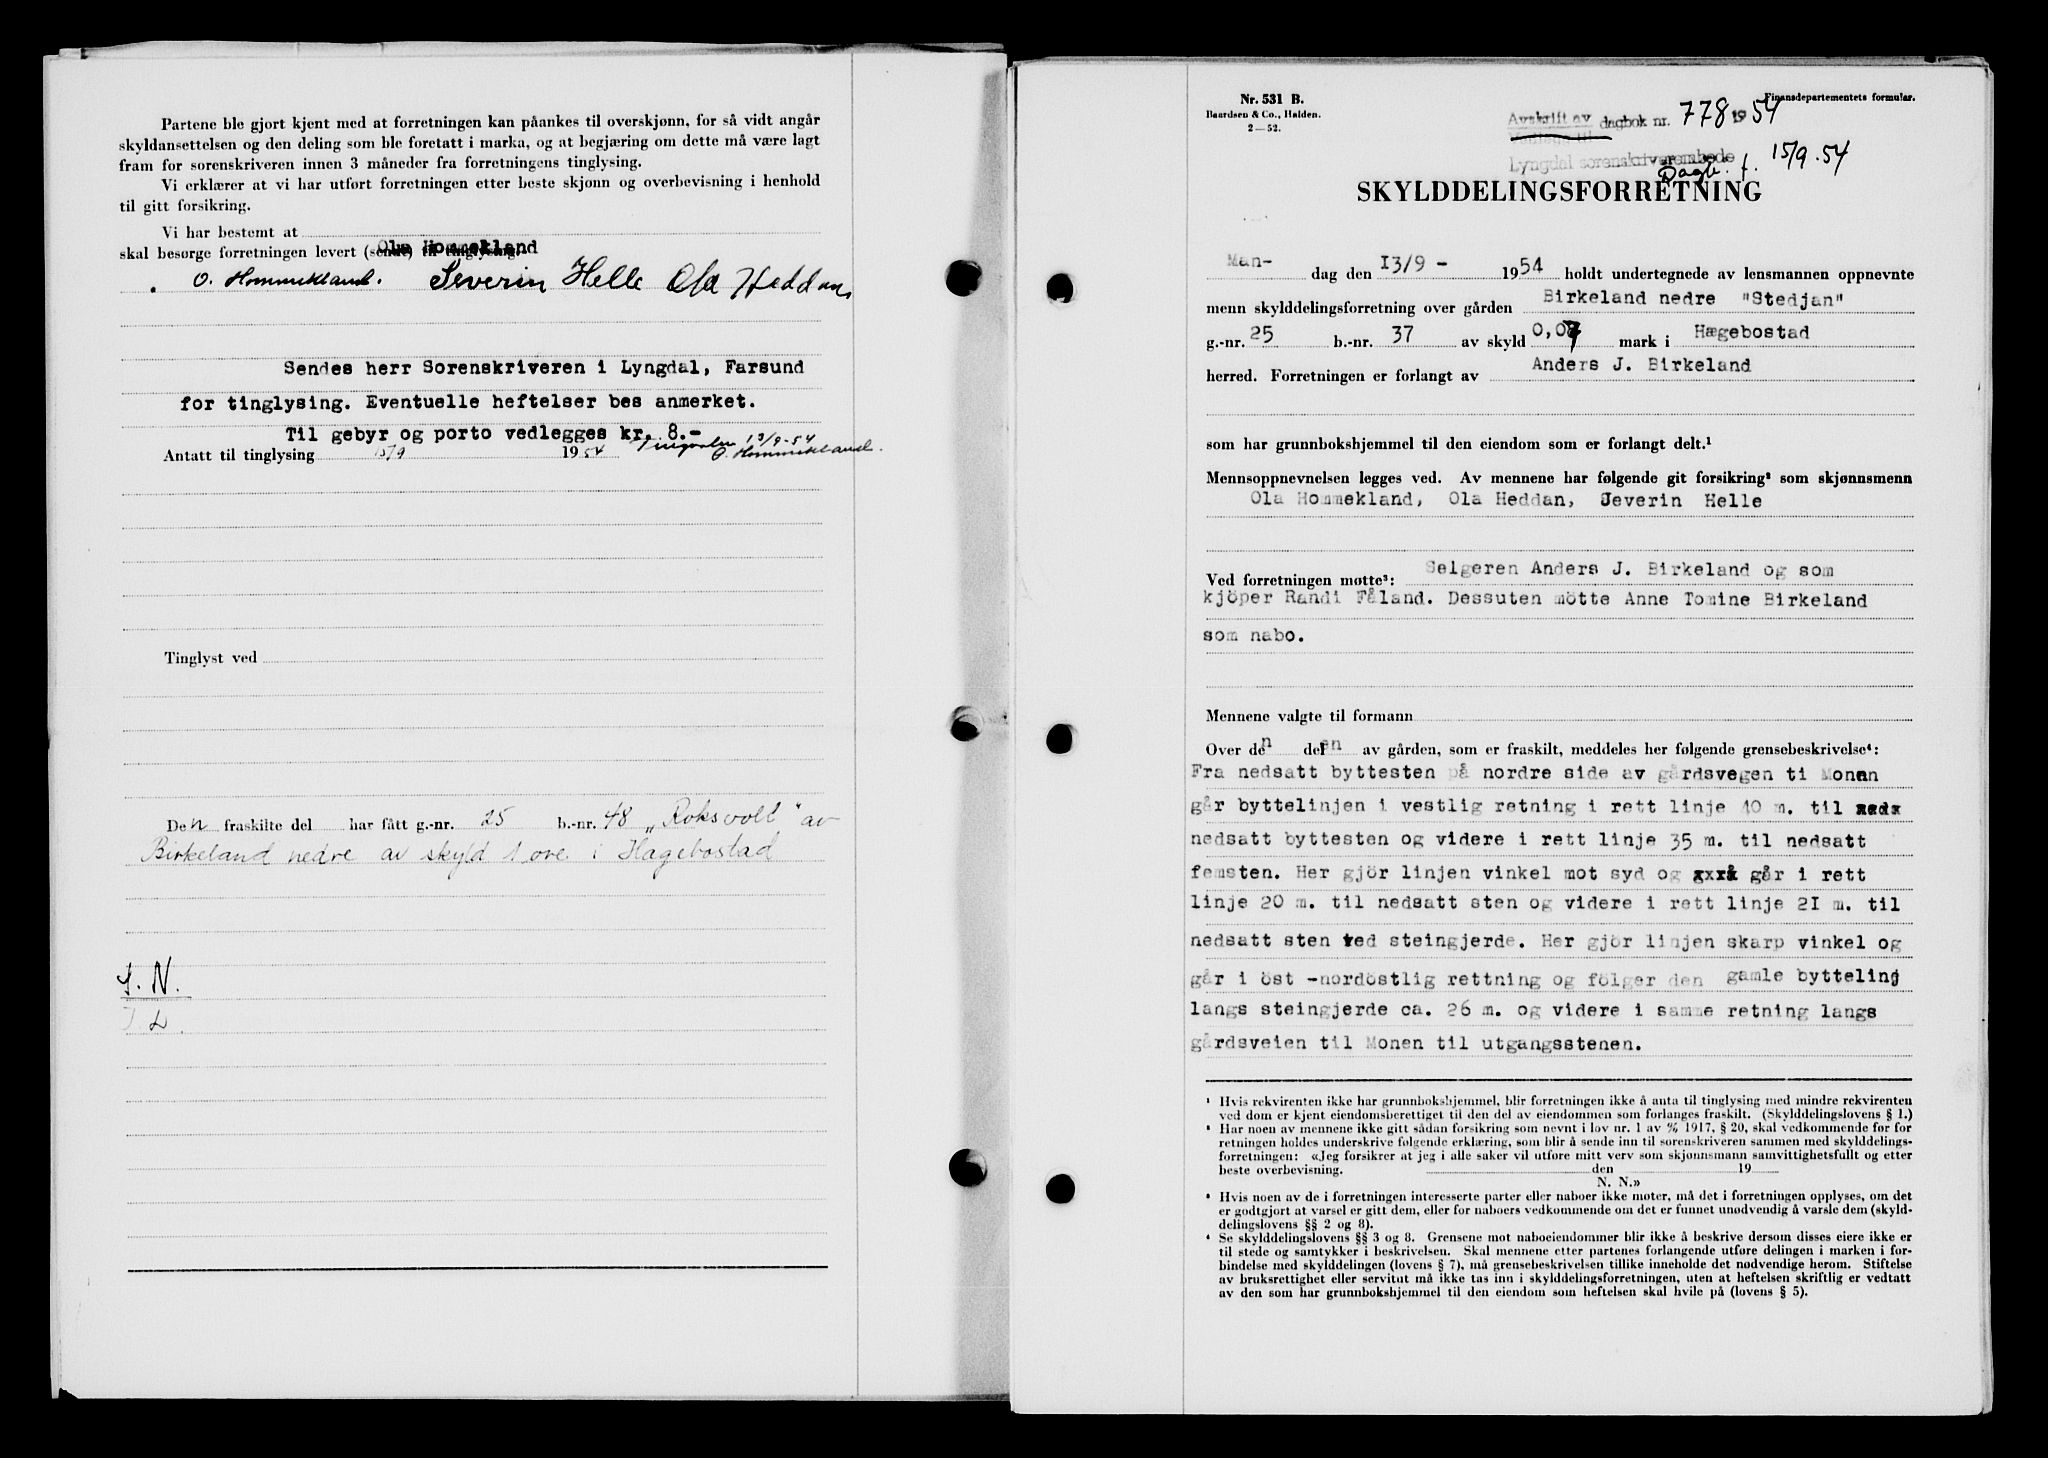 Partene ble gjort kjent med at forretningen kan påankes til overskjønn, for så vidt angår
skyldansettelsen og den deling som ble foretatt i marka, og at begjæring om dette må være lagt
fram for sorenskriveren innen 3 måneder fra forretningens tinglysing.
Vi erklærer at vi har utført forretningen etter beste skjønn og overbevisning i henhold
til gitt forsikring.
Vi har bestemt at
Ola Hommekland
skal besørge forretningen levert (sendt) til tinglysing.
O. Hommekland. Severin Helle Ola Heddan
Sendes herr Sorenskriveren i Lyngdal, Farsund
for tinglysing. Eventuelle heftelser bes anmerket.
Til gebyr og porto vedlegges kr. 8.-
Tingvatn 13/9-54
Antatt til tinglysing 15/9 1954 O. Hommekland.
Tinglyst ved
Den fraskilte del har fått g.-nr. 25 b.-nr. 48 „Roksvoll" av
Birkeland nedre av skyld 1 øre i Hægebostad
Nr. 531 B.
Baardsen & Co., Halden.
2—52.
Finansdepartementets formular.
Avskrift av dagbok nr. 778 1954
Lyngdal sorenskriverembede
Dagb. f. 15/9.54
SKYLDDELINGSFORRETNING
Man- dag den 13/9 - 1954 holdt undertegnede av lensmannen oppnevnte
menn skylddelingsforretning over gården Birkeland nedre "Stedjan"
g.-nr. 25 b.-nr. 37 av skyld 0,07 mark i Hægebostad
herred. Forretningen er forlangt av Anders J. Birkeland
som har grunnbokshjemmel til den eiendom som er forlangt delt.¹
Mennsoppnevnelsen legges ved. Av mennene har følgende git forsikring² som skjønnsmenn
Ola Hommekland, Ola Heddan, Jeverin Helle
Ved forretningen møtte³: Selgeren Anders J. Birkeland og som
kjöper Randi Fåland. Dessuten mötte Anne Tomine Birkeland
som nabo.
Mennene valgte til formann
Over den delen av gården, som er fraskilt, meddeles her følgende grensebeskrivelse⁴:
Fra nedsatt byttesten på nordre side av gårdsvegen ti Monen
går byttelinjen i vestlig retning i rett linje 10 m. til
nedsatt byttesten og videre i rett linje 35 m. til nedsatt
femsten. Her gjör linjen vinkel mot syd og går i rett
linje 20 m. til nedsatt sten og videre i rett linje 2I m. til
nedsatt sten ved steingjerde. Her gjör linjen skarp vinkel og
går i öst -nordöstlig rettning og fölger den gamle byttelinj
langs steingjerde ca. 26 m. og videre i samme retning langs
gårdsveien til Monen til utgangsstenen.
¹ Hvis rekvirenten ikke har grunnbokshjemmel, blir forretningen ikke å anta til tinglysing med mindre rekvirenten
ved dom er kjent eiendomsberettiget til den del av eiendommen som forlanges fraskilt. (Skylddelingslovens § 1.)
² Har noen av mennene ikke gitt sådan forsikring som nevnt i lov nr. 1 av 1917, § 20, skal vedkommende før for
retningen holdes underskrive følgende erklæring, som blir å sende inn til sorenskriveren sammen med skylddelings-
forretningen: «Jeg forsikrer at jeg i alle saker vil utføre mitt verv som skjønnsmann samvittighetsfullt og etter
beste overbevisning. den 19
N. N.»
³ Hvis noen av de i forretningen interesserte parter eller naboer ikke møter, må det i forretningen opplyses, om det
er godtgjort at varsel er gitt dem, eller for naboers vedkommende om det er funnet unødvendig å varsle dem (skyld-
delingslovens §§ 2 og 8).
⁴ Se skylddelingslovens §§ 3 og 8. Grensene mot naboeiendommer blir ikke å beskrive dersom disses eiere ikke er
til stede og samtykker i beskrivelsen. Skal mennene etter partenes forlangende utføre delingen i marken i for-
bindelse med skylddelingen (lovens § 7), må grensebeskrivelsen tillike inneholde det nødvendige herom. Stiftelse
av bruksrettighet eller servitut må ikke tas inn i skylddelingsforretningen, uten at heftelsen skriftlig er vedtatt
av den som har grunnbokshjemmel til den eiendom som heftelsen skal hvile på (lovens § 5).